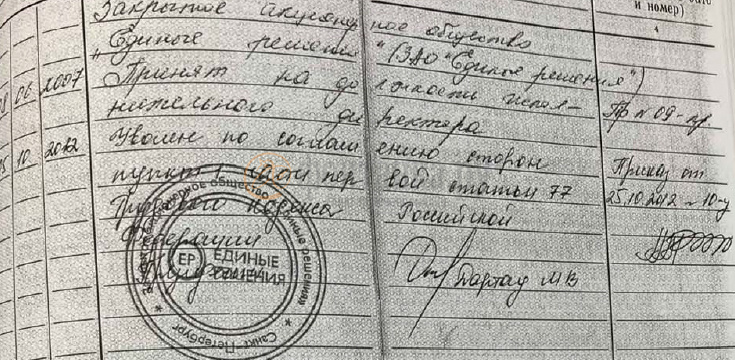 и номер)
4
Закрытое акционер ное общество
„Единые решения" (ЗАО "Единые решения")
06 2007 Принят на до лжность испол-
нительного ди ректора Пр № 09-пр
10 2012 Уволен по соглаш ению сторон
пункт 1 части пер вой статьи 77 Приказ от
Трудового кодекса Российской 25.10.2012 № 10-у
Федерации
ЕР ЕДИНЫЕ РЕШЕНИЯ
акционерное общество "Единые решения"
* Санкт-Петербург *
МВ